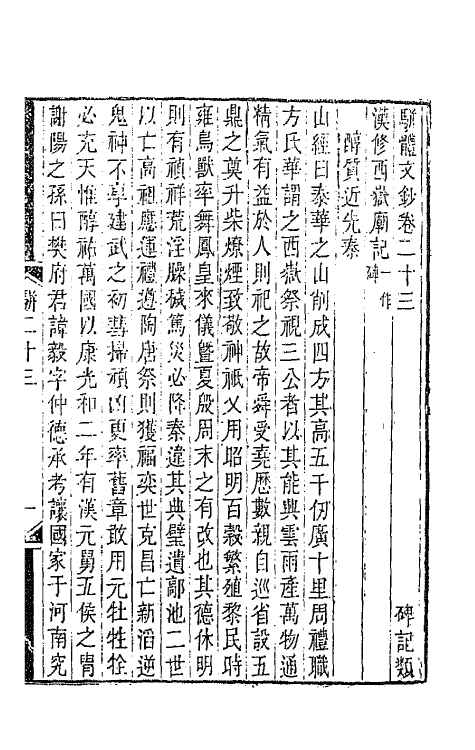 駢體文鈔卷二十三　碑記類
漢修西嶽廟記一作碑
醇質近先秦
山經曰泰華之山削成四方其高五千仞廣十里周禮職
方氏華謂之西嶽祭視三公者以其能興雲雨產萬物通
精氣有益於人則祀之故帝舜受堯歷數親自巡省設五
鼎之奠升柴燎煙致敬神祇乂用昭明百穀繁殖黎民時
雍鳥獸率舞鳳皇來儀曁夏殷周末之有改也其德休明
則有禎祥荒淫臊穢篤災必降秦違其典璧遺鄗池二世
以亡高祖應運禮遵陶唐祭則獲福奕世克昌亡新滔逆
鬼神不享建武之初彗掃頑凶更率舊章敢用元牡牲牷
必充天惟醇祐萬國以康光和二年有漢元舅五侯之胄
謝陽之孫曰樊府君諱毅字仲德承考讓國家于河南究
駢二十三　一